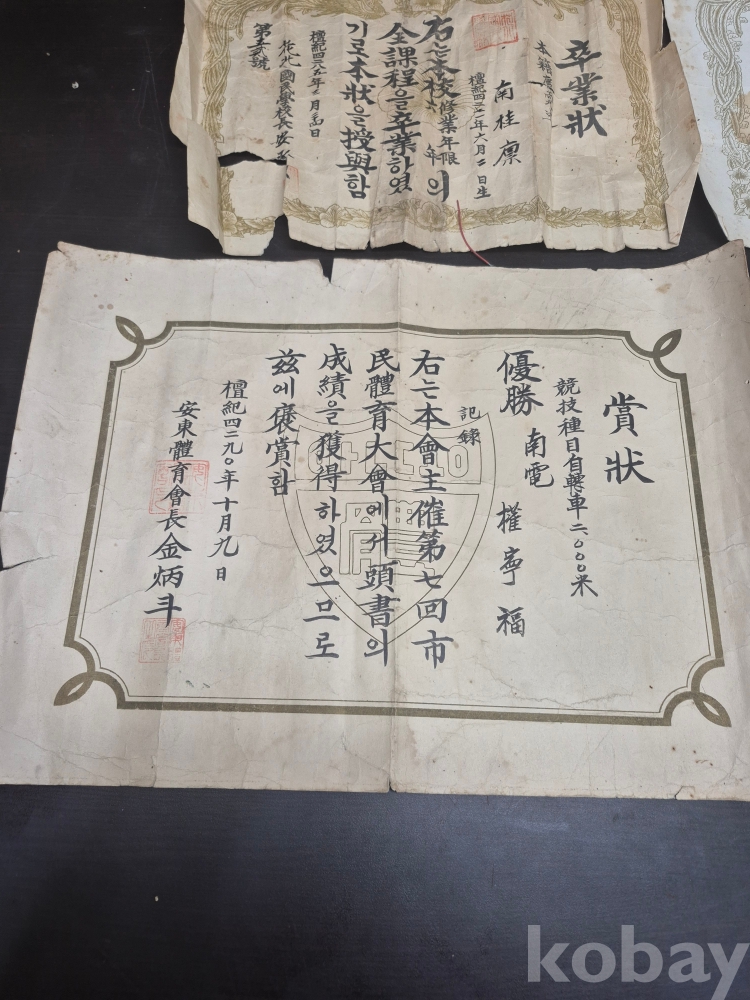 卒業狀
南桂廩
檀紀四二七一年六月二日生
右는本校修業年限 年의
全課程을卒業하였
기로本狀을授與함
賞狀
競技種目自轉車二,〇〇〇米
優勝 南電 權寧福
記錄
右는本會主催第七回市
民體育大會에서頭書의
成績을獲得하였으므로
玆에褒賞함
檀紀四二九〇年十月九日
安東體育會長金炳斗
kobay